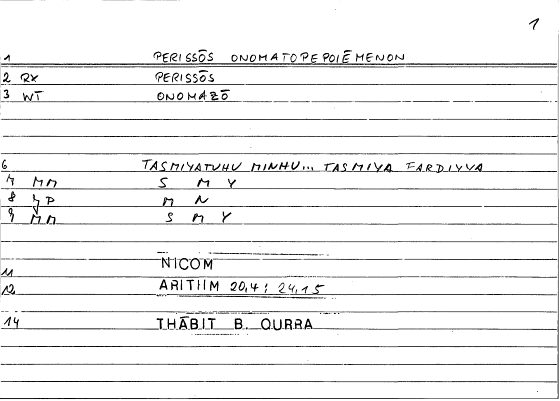 1
1 PERISSŌS ONOMATOPEPOIĒMENON
2 RX PERISSŌS
3 WT ONOMAZŌ
6 TASMIYATUHU MINHU... TASMIYA FARDIYYA
7 MM S M Y
8 JP M N
9 MM S M Y
11 NICOM
12 ARITHM 20,4; 24,15
14 THĀBIT B. QURRA